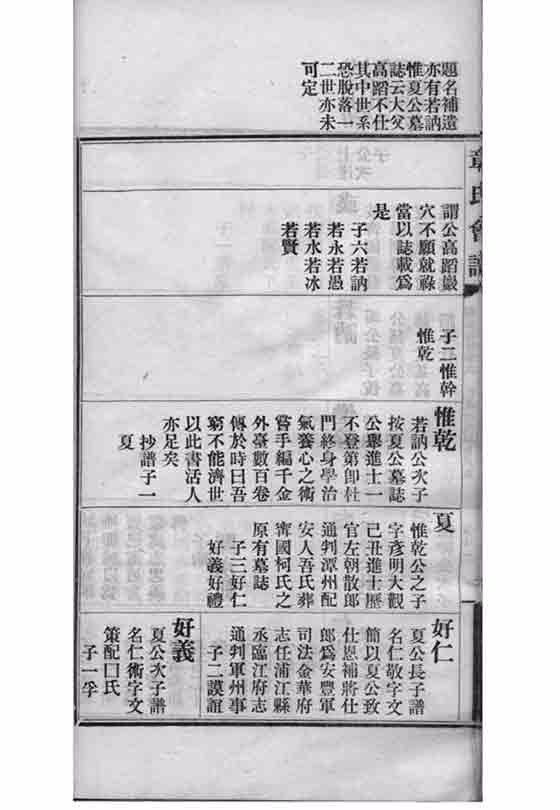 章氏會譜
題名補遺
亦有若訥
惟夏公墓
誌云大父
高蹈不仕
其中世系
恐脫落一
二世亦未
可定
謂公高蹈巖
穴不願就祿
當以誌載爲
是
子六若訥
若永若愚
若水若冰
若賢
子二惟幹
惟乾
惟乾
若訥公次子
按夏公墓誌
公舉進士一
不登第卽杜
門終身學治
氣養心之術
嘗手編千金
外臺數百卷
傳於時曰吾
窮不能濟世
以此書活人
亦足矣
抄譜子一
夏
夏
惟乾公之子
字彥明大觀
己丑進士歷
官左朝散郎
通判潭州配
安人吾氏葬
甯國柯氏之
原有墓誌
子三好仁
好義好禮
好仁
夏公長子譜
名仁敬字文
簡以夏公致
仕恩補將仕
郎爲安豐軍
司法金華府
志任浦江縣
丞臨江府志
通判軍州事
子二謨誼
好義
夏公次子譜
名仁術字文
策配囗氏
子一孚